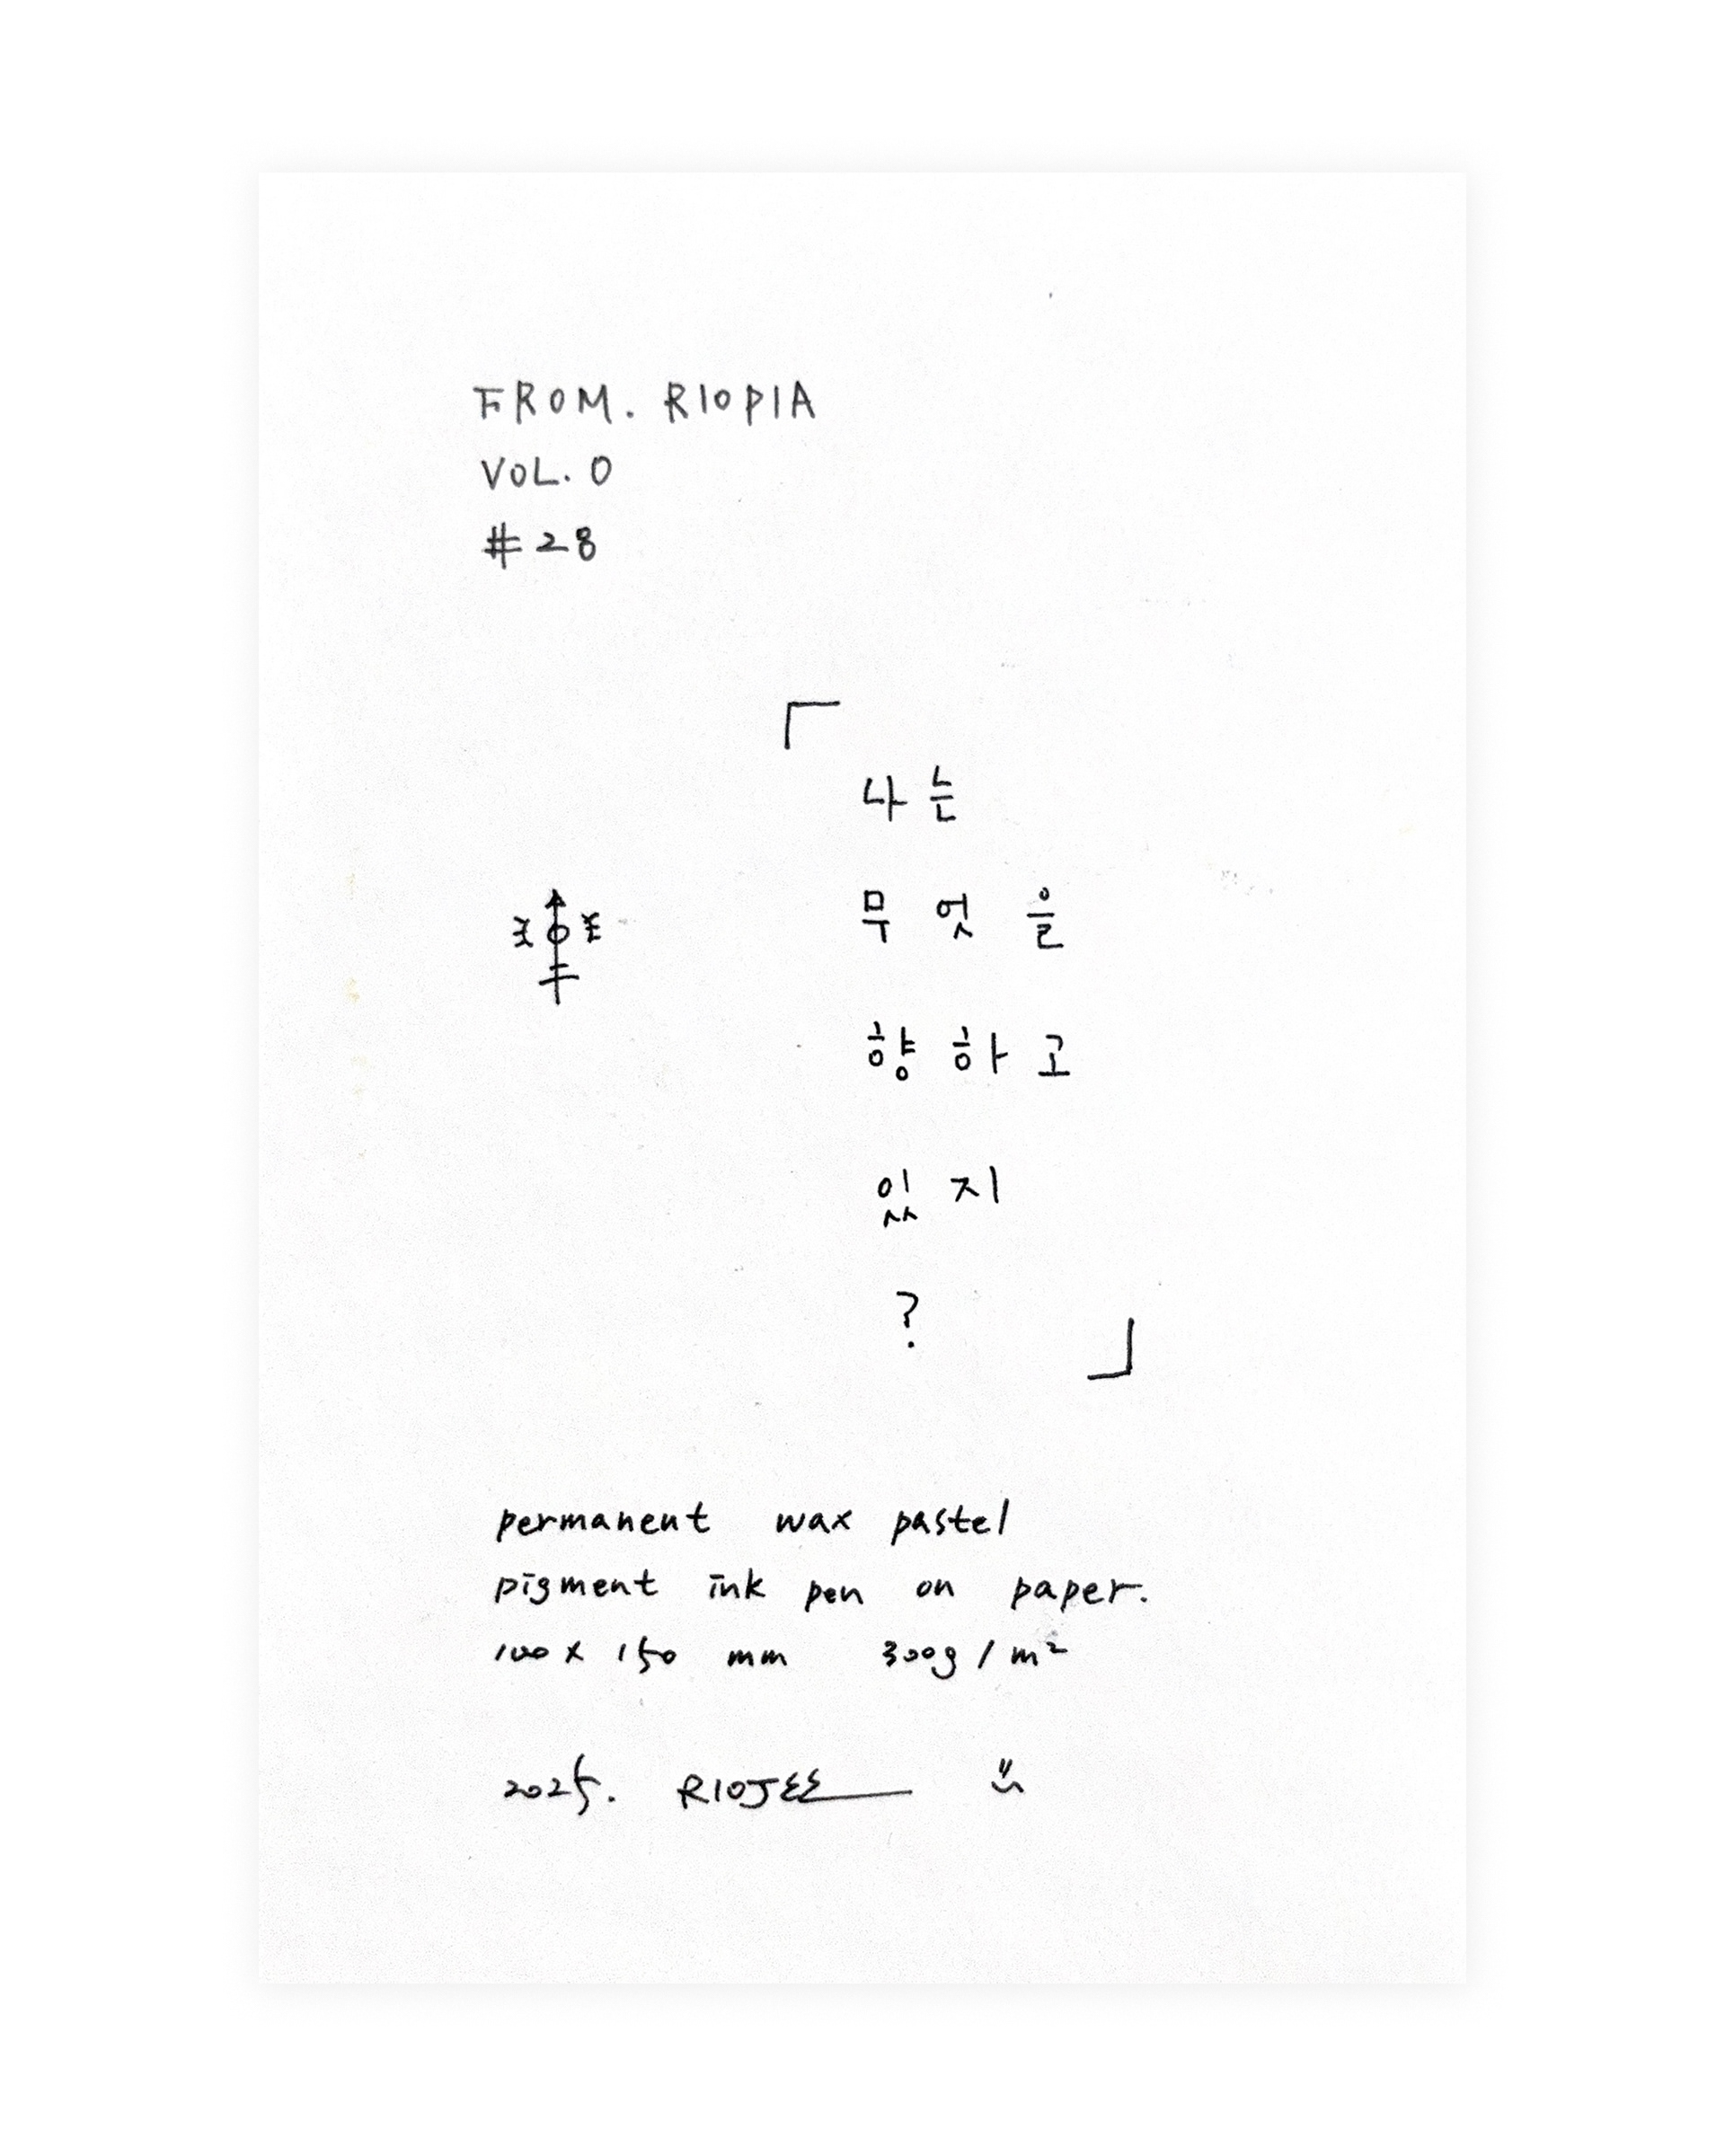 FROM. RIOPIA
VOL. 0
#28
「
나는
무엇을
향하고
있지
?
」
permanent wax pastel
pigment ink pen on paper.
100 x 150 mm 300g / m²
2025. RIOJEE